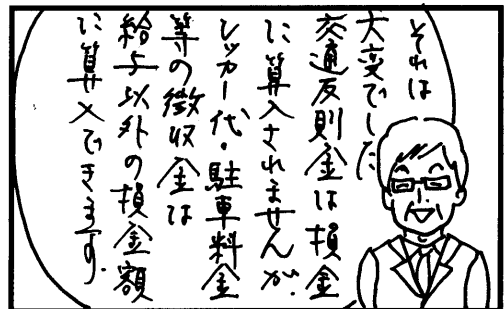 それは
大変でした
交通反則金は損金
に算入されませんが、
レッカー代・駐車料金
等の徴収金は
給与以外の損金額
に算入できます。